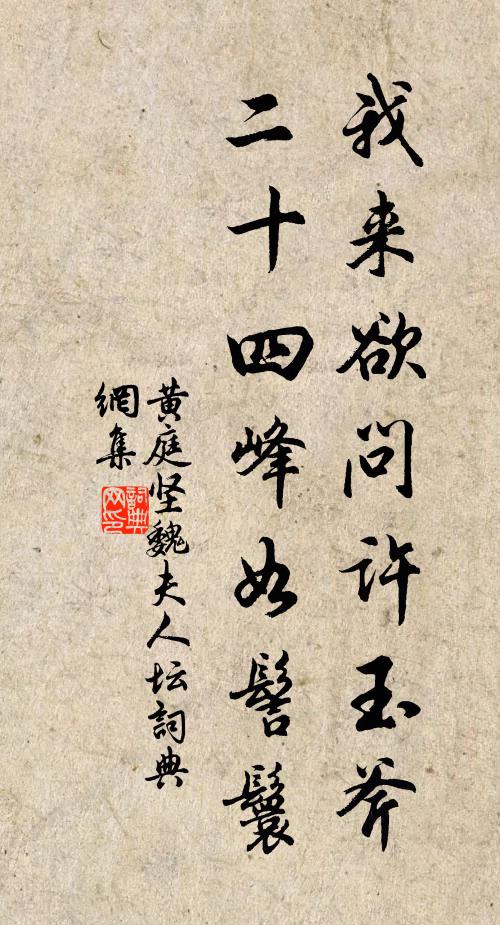 我来欲问许玉斧
二十四峰如髻鬟
黄庭坚魏夫人坛詞典
網集
詞典
网印